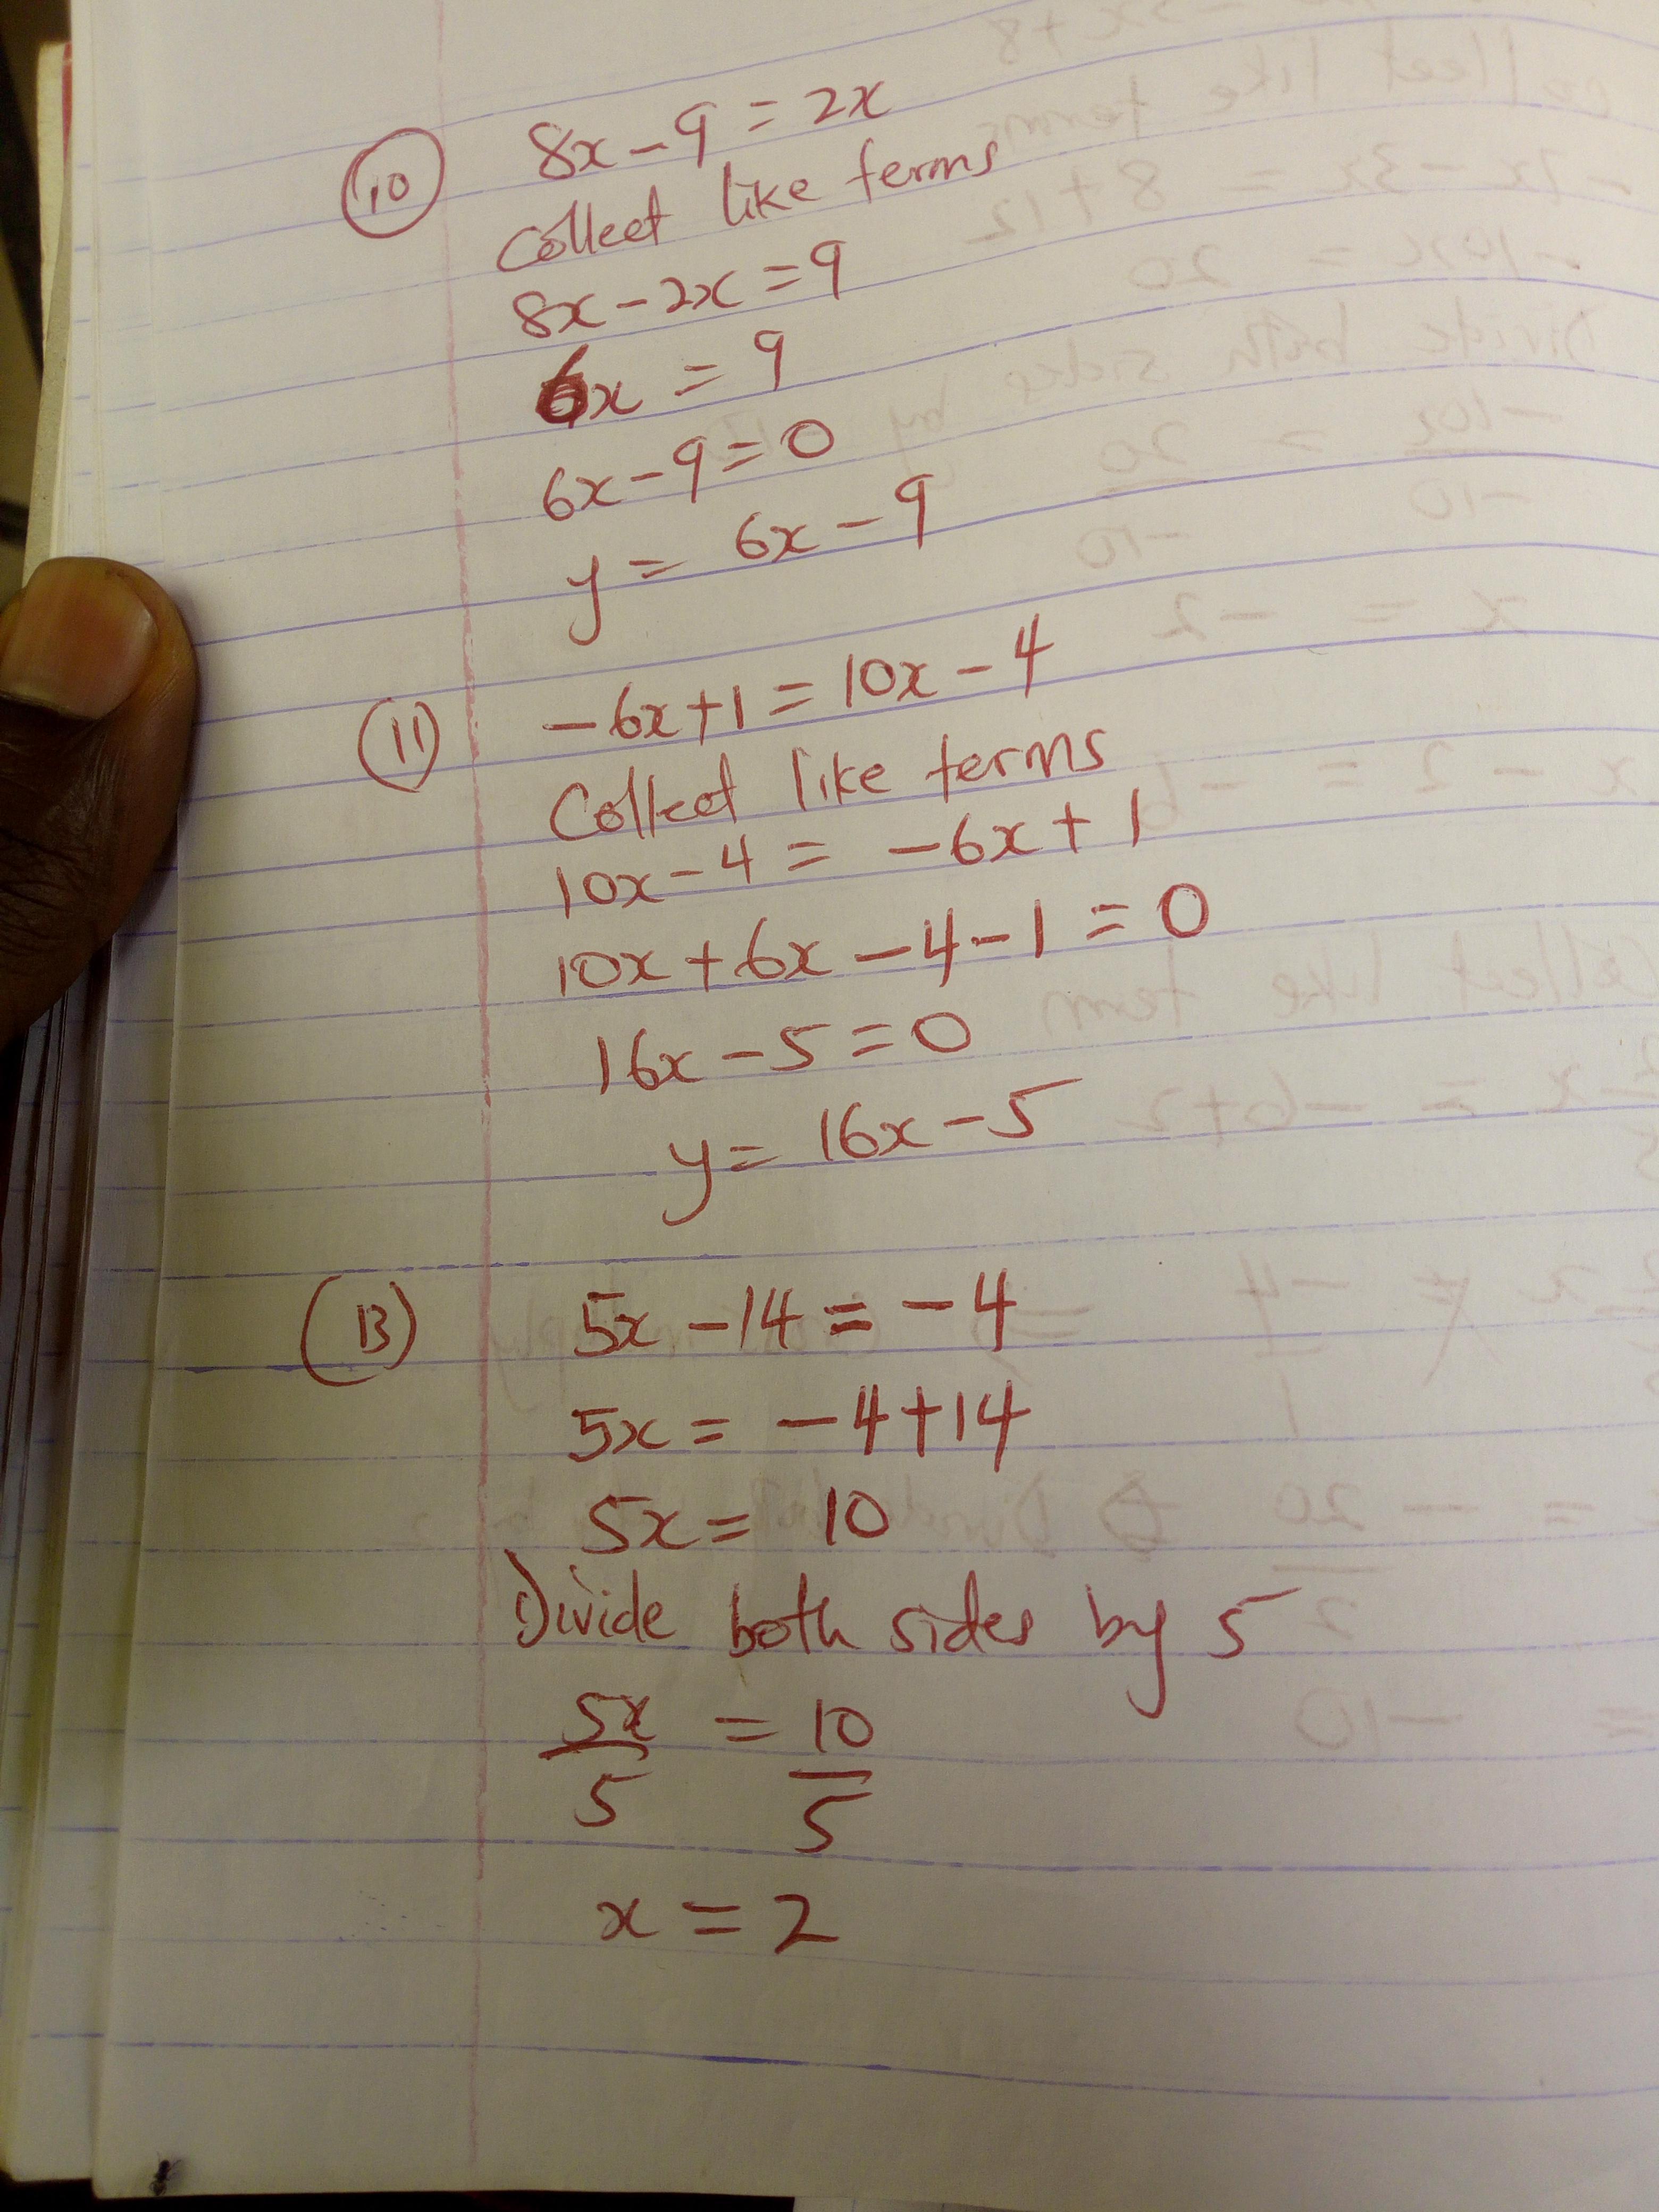 10 8x - 9 = 2x
Collect like terms
8x - 2x = 9
6x = 9
6x - 9 = 0
y = 6x - 9
11 -6x + 1 = 10x - 4
Collect like terms
10x - 4 = -6x + 1
10x + 6x - 4 - 1 = 0
16x - 5 = 0
y = 16x - 5
13 5x - 14 = -4
5x = -4 + 14
5x = 10
Divide both sides by 5
5x/5 = 10/5
x = 2